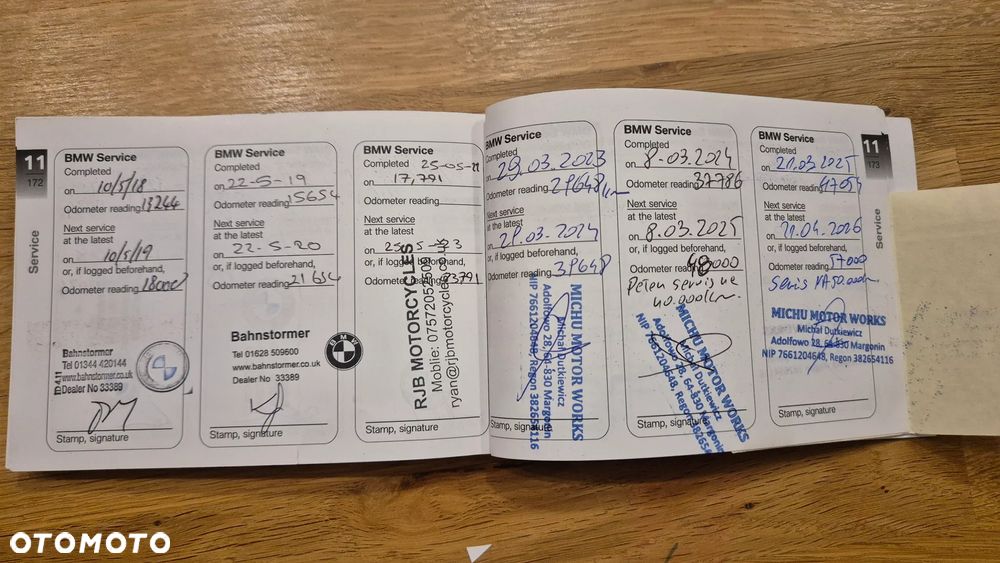 11
172
Service
BMW Service
Completed
on 10/5/18
Odometer reading 13244
Next service
at the latest
on 10/5/19
or, if logged beforehand,
Odometer reading
Bahnstormer
Tel 01344 420144
www.bahnstormer.co.uk
Dealer No 33389
Stamp, signature
BMW Service
Completed
on 22-5-19
Odometer reading 15654
Next service
at the latest
on 22-5-20
or, if logged beforehand,
Odometer reading 21654
Bahnstormer
Tel 01628 509600
www.bahnstormer.co.uk
Dealer No 33389
BMW
Stamp, signature
BMW Service
Completed 25-05-22
on 17,791
Odometer reading
Next service
at the latest
on 25-5-23
or, if logged beforehand,
Odometer reading 23791
RJB MOTORCYCLES
Mobile:
ryan@rjbmotorcycles.co.uk
Stamp, signature
BMW Service
Completed
on 29.03.2023
Odometer reading 29648km
Next service
at the latest
on 29.03.2024
or, if logged beforehand,
Odometer reading 39648
MICHU MOTOR WORKS
Michał Dutkiewicz
Adolfowo 28, 64-830 Margonin
NIP 7661204648, Regon 382654116
Stamp, signature
BMW Service
Completed
on 8.03.2024
Odometer reading 37786
Next service
at the latest
on 8.03.2025
or, if logged beforehand,
Odometer reading 48000
Pełen serwis
40.000km.
MICHU MOTOR WORKS
Michał Dutkiewicz
Adolfowo 28, 64-830 Margonin
NIP 7661204648, Regon 382654
Stamp, signature
BMW Service
Completed
on 21.03.2025
Odometer reading 47054
Next service
at the latest
on 21.04.2026
or, if logged beforehand,
Odometer reading 57000
Serwis NA 50.000km
MICHU MOTOR WORKS
Michał Dutkiewicz
Adolfowo 28, 64-830 Margonin
NIP 7661204648, Regon 382654116
Stamp, signature
11
173
Service
OTOMOTO